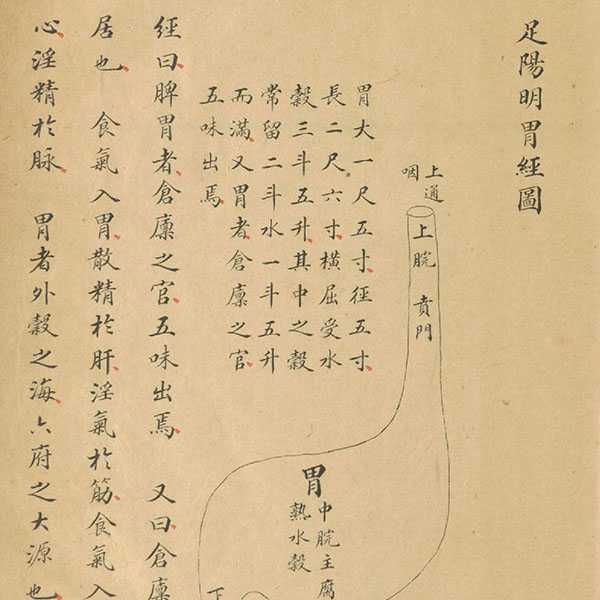 足陽明胃經圖
上通
咽
上脘 賁門
胃大一尺五寸徑五寸
長二尺六寸橫屈受水
穀三斗五升其中之穀
常留二斗水一斗五升
而滿又胃者倉廩之官
五味出焉
胃
中脘主腐
熟水穀
下
經曰脾胃者倉廩之官五味出焉 又曰倉廩
居也 食氣入胃散精於肝淫氣於筋食氣入
心淫精於脉 胃者外穀之海六府之大源也